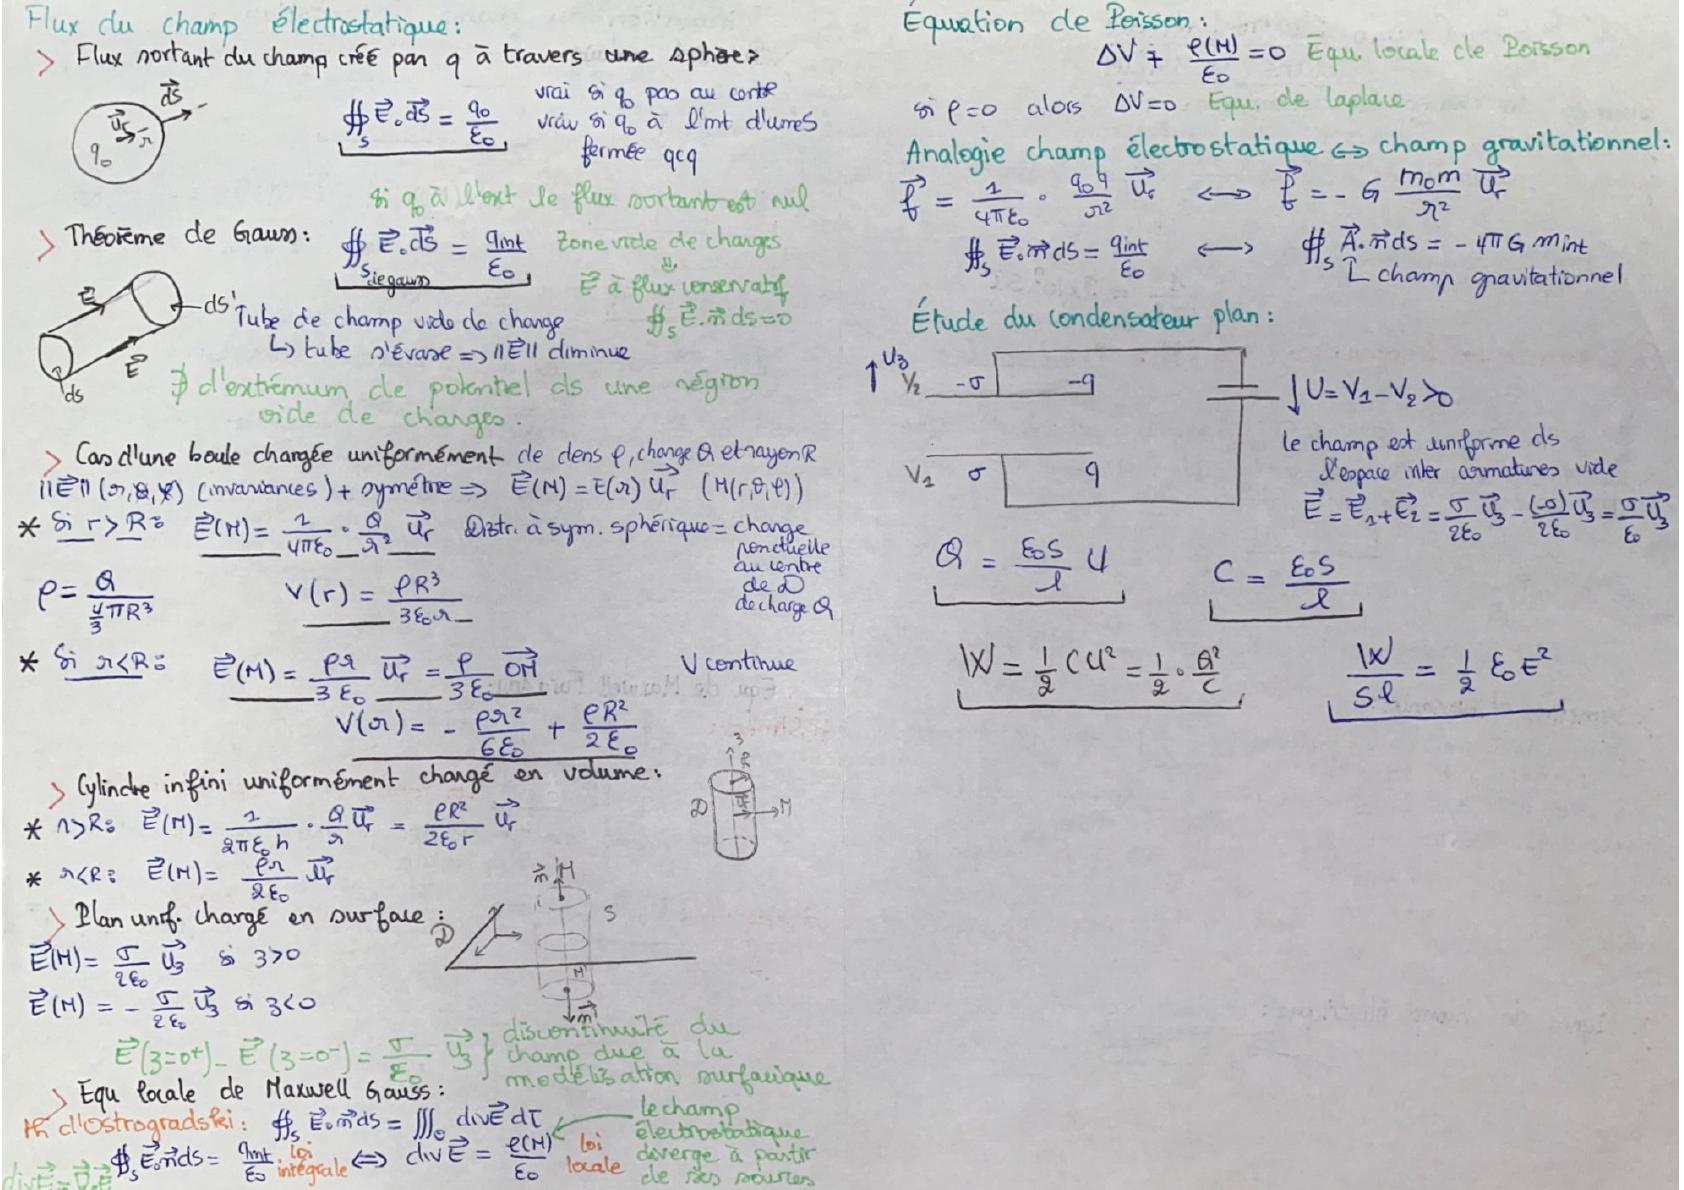 Flux du champ électrostatique :
> Flux sortant du champ créé par q à travers une sphère
dS
u_r
r
q₀
∯_S E⃗.dS⃗ = q₀/ε₀
vrai si q₀ pas au centre
vrai si q₀ à l'int d'une S
fermée qcq
si q₀ à l'ext le flux sortant est nul
> Théorème de Gauss : ∯_S de gauss E⃗.dS⃗ = qint/ε₀
Zone vide de charges
⇓
E⃗ à flux conservatif
∯_S E⃗.n⃗ ds = 0
E⃗
ds'
E⃗
ds
Tube de champ vide de charge
↳ tube s'évase => ||E⃗|| diminue
∄ d'extrémum de potentiel ds une région
vide de charges.
> Cas d'une boule chargée uniformément de dens ρ, charge Q et rayon R
||E⃗|| (r, θ, φ) (invariances) + symétrie => E⃗(M) = E(r) u⃗r (M(r,θ,φ))
* Si r > R : E⃗(M) = 1/4πε₀ · Q/r² u⃗r
Distr. à sym. sphérique = charge
ponctuelle
au centre
de D
de charge Q
ρ = Q / (4/3 πR³)
V(r) = ρR³/3ε₀r
* Si r < R : E⃗(M) = ρr/3ε₀ u⃗r = ρ/3ε₀ OM⃗
V continue
V(r) = - ρr²/6ε₀ + ρR²/2ε₀
> Cylindre infini uniformément chargé en volume :
* r > R : E⃗(M) = 1/2πε₀h · Q/r u⃗r = ρR²/2ε₀r u⃗r
z
R
D
M
* r < R : E⃗(M) = ρr/2ε₀ u⃗r
> Plan unif. chargé en surface :
D
n⃗
M
S
M'
n⃗'
E⃗(M) = σ/2ε₀ u⃗z si z > 0
E⃗(M) = - σ/2ε₀ u⃗z si z < 0
E⃗(z=0⁺) - E⃗(z=0⁻) = σ/ε₀ u⃗z }
discontinuité du
champ due à la
modélisation surfacique
> Equ locale de Maxwell Gauss :
th d'Ostrogradski : ∯_S E⃗.n⃗ ds = ∭ divE⃗ dτ
∯_S E⃗.n⃗ds = qint/ε₀ loi intégrale <=> div E⃗ = ρ(M)/ε₀ loi locale
le champ
électrostatique
diverge à partir
de ses sources
divE⃗ = ∇⃗.E⃗
Équation de Poisson :
ΔV + ρ(M)/ε₀ = 0 Equ. locale de Poisson
si ρ=0 alors ΔV=0 Equ. de laplace
Analogie champ électrostatique <-> champ gravitationnel :
f⃗ = 1/4πε₀ · q₀q/r² u⃗r <-> f⃗ = - G m₀m/r² u⃗r
∯_S E⃗.n⃗ds = qint/ε₀ <-> ∯_S A⃗.n⃗ds = - 4πG mint
↳ champ gravitationnel
Étude du condensateur plan :
u⃗z
V₂ -σ -q
U = V₁ - V₂ > 0
V₁ σ q
le champ est uniforme ds
l'espace inter armatures vide
E⃗ = E⃗₁ + E⃗₂ = σ/2ε₀ u⃗z - (-σ)/2ε₀ u⃗z = σ/ε₀ u⃗z
Q = ε₀S/l U
C = ε₀S/l
W = 1/2 CU² = 1/2 · Q²/C
W/Sl = 1/2 ε₀E²